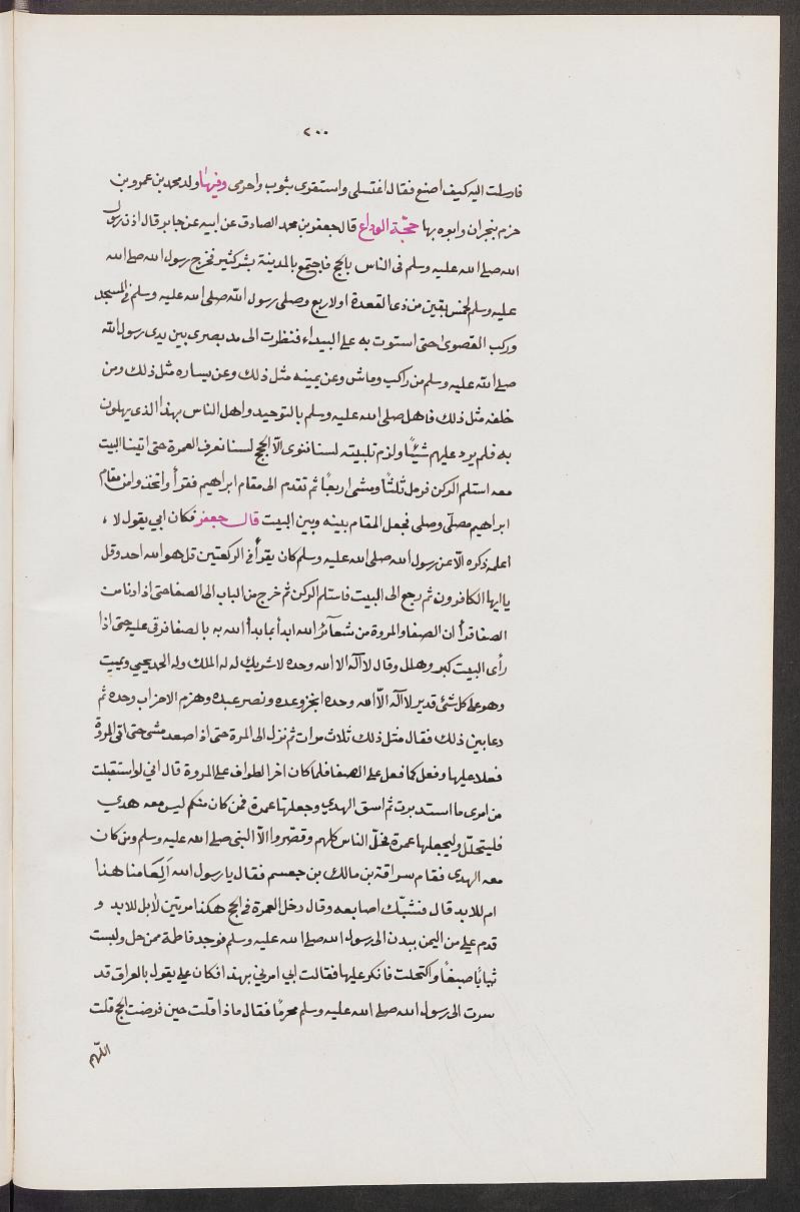 ٢٠٠
فارسلت اليه كيف اصنع فقال اغتسلى واستقوى بثوب واحرمى وفيها ولد محمد بن عمرو بن
حزم بنجران وابوه بها حجّة الوداع قال جعفر بن محمد الصادق عن ابيه عن جابر قال اذن رسول
الله صلى الله عليه وسلم فى الناس بالحج فاجتمع بالمدينة بشر كثير فخرج رسول الله صلى الله
عليه وسلم لخمس بقين من ذى القعدة او لاربع وصلى رسول الله صلى الله عليه وسلم فى المسجد
وركب القصوى حتى استوت به على البيداء فنظرت الى مد بصرى بين يدى رسول الله
صلى الله عليه وسلم من راكب وماش وعن يمينه مثل ذلك وعن يساره مثل ذلك ومن
خلفه مثل ذلك فاهل صلى الله عليه وسلم بالتوحيد واهل الناس بهذا الذى يهلون
به فلم يرد عليهم شيئًا ولزم تلبيته لسنا ننوى الّا الحج لسنا نعرف العمرة حتى اتينا البيت
معه استلم الركن فرمل ثلثًا ومشى اربعًا ثم تقدم الى مقام ابراهيم فقرأ واتخذوا من مقام
ابراهيم مصلّى وصلى فجعل المقام بينه وبين البيت قال جعفر فكان ابي يقول لا ،
اعلمه ذكره الّا عن رسول الله صلى الله عليه وسلم كان يقرأ فى الركعتين قل هو الله احد وقل
يا ايها الكافرون ثم رجع الى البيت فاستلم الركن ثم خرج من الباب الى الصفا حتى اذا دنا من
الصفا قرأ ان الصفا والمروة من شعآئر الله ابدأ بما بدأ الله به بالصفا فرقى عليه حتى اذا
رأى البيت كبر وهلل وقال لا آله الا الله وحده لا شريك له له الملك وله الحمد يحيى ويميت
وهو على كل شئ قدير لا آله الّا الله وحده انجز وعده ونصر عبده وهزم الاحزاب وحده ثم
دعا بين ذلك فقال مثل ذلك ثلاث مرات ثم نزل الى المرة حتى اذا اصعد مشى حتى اتى المروة
فعلا عليها وفعل كما فعل على الصفا فلما كان اخر الطواف على المروة قال انى لو استقبلت
من امرى ما استدبرت ثم اسق الهدي وجعلتها عمرة فمن كان منكم ليس معه هدي
فليتحلّل وليجعلها عمرة فحلّ الناس كلهم وقصّروا الّا النبى صلى الله عليه وسلم ومن كان
معه الهدى فقام سراقة بن مالك بن جعسم فقال يا رسول الله اَلِعَامنا هذا
ام للابد قال فشبّك اصابعه وقال دخل العمرة فى الحج هكذا مرتين لا بل للابد و
قدم على من اليمن ببدن الى رسول الله صلى الله عليه وسلم فوجد فاطمة ممن حل ولبست
ثيابًا صبغًا واكتحلت فانكر عليها فقالت ابي امرنى بهذا فكان على يقول بالعراق قد
سرت الى رسول الله صلى الله عليه وسلم محرمًا فقال ماذا قلت حين فرضت الحج قلت
اللّهم